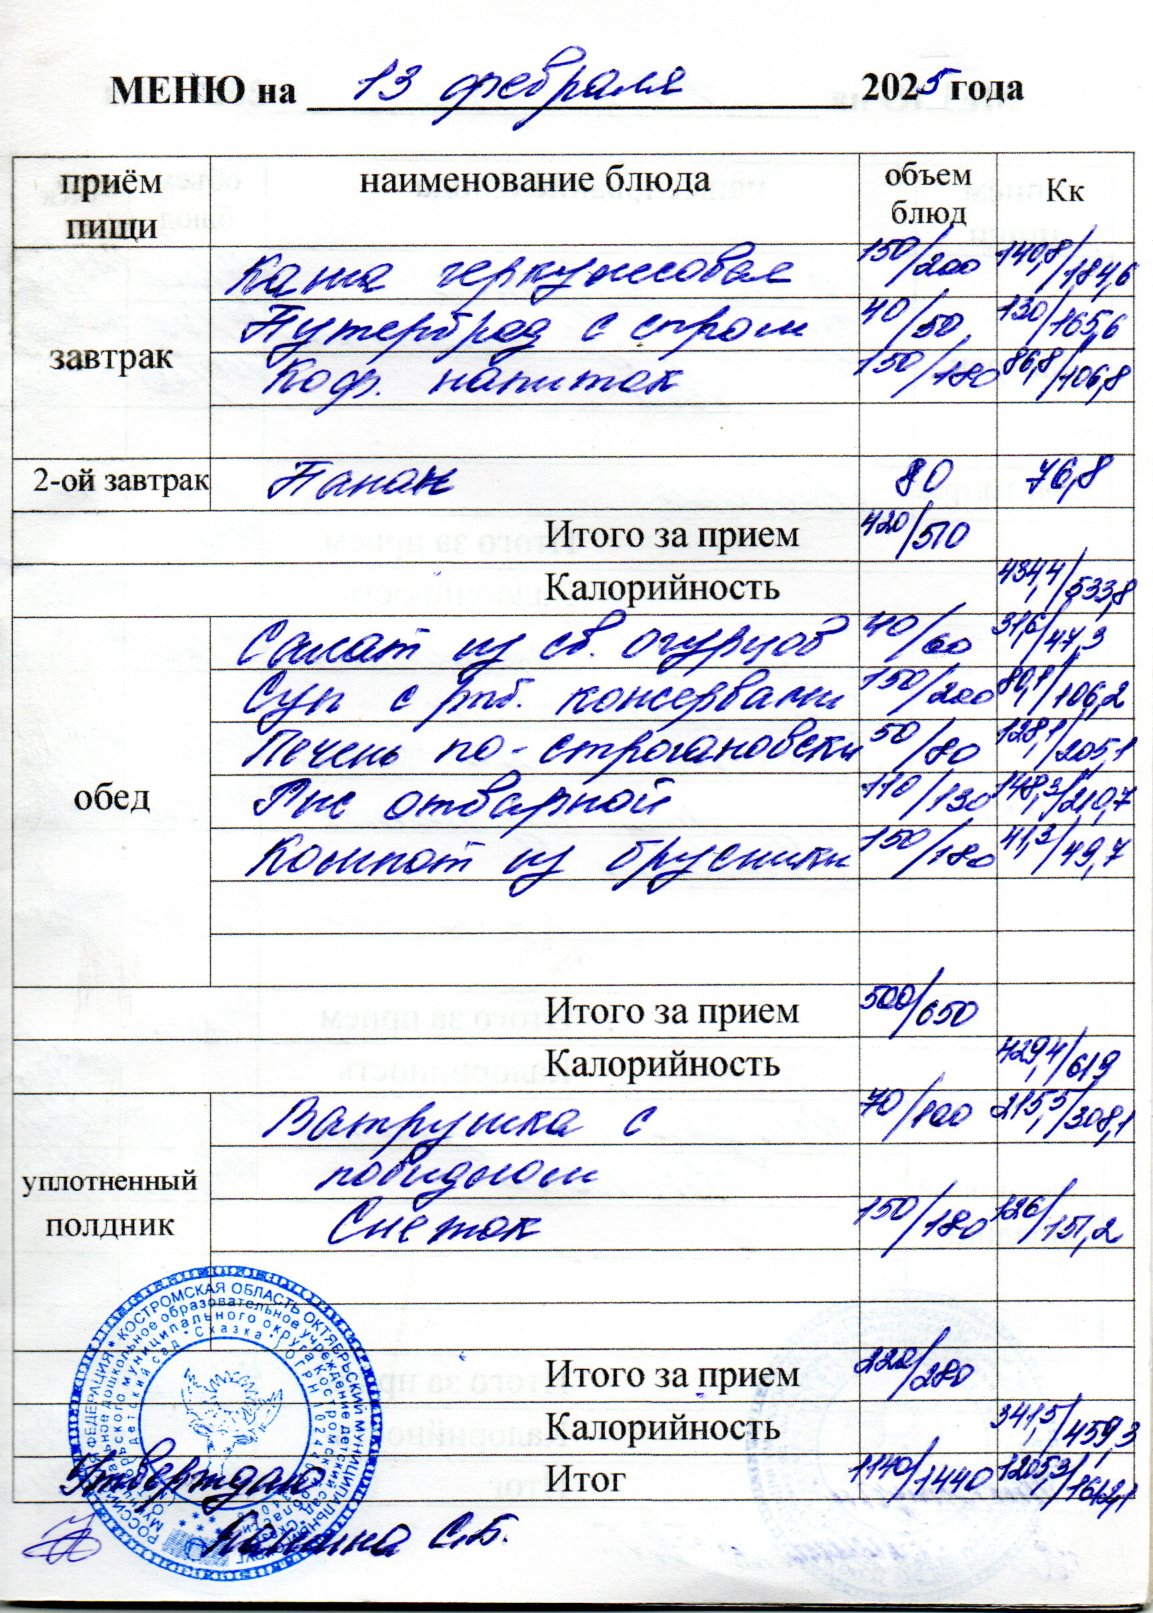 МЕНЮ на 13 февраля 2025 года
приём пищи наименование блюда объем блюд Кк
завтрак
Каша геркулесовая 150/200 140,8/184,6
Бутерброд с сыром 40/50 130/165,6
Коф. напиток 150/180 86,8/106,8
2-ой завтрак Банан 80 76,8
Итого за прием 420/510
Калорийность 434,4/533,8
обед
Салат из св. огурцов 40/60 31,6/47,3
Суп с рыб. консервами 150/200 80,1/106,2
Печень по-строгановски 50/80 128,1/205,1
Рис отварной 110/130 148,3/210,7
Компот из брусники 150/180 41,3/49,7
Итого за прием 500/650
Калорийность 429,4/619
уплотненный полдник
Ватрушка с 70/100 215,5/308,1
повидлом
Снежок 150/180 126/151,2
Итого за прием 220/280
Калорийность 341,5/459,3
Итог 1140/1440 1205,3/1612,1
Утверждаю
С.Б.
РОССИЙСКАЯ ФЕДЕРАЦИЯ * КОСТРОМСКАЯ ОБЛАСТЬ ОКТЯБРЬСКИЙ МУНИЦИПАЛЬНЫЙ ОКРУГ
дошкольное образовательное учреждение детский сад
муниципального округа Костромской области
Детский сад "Сказка"